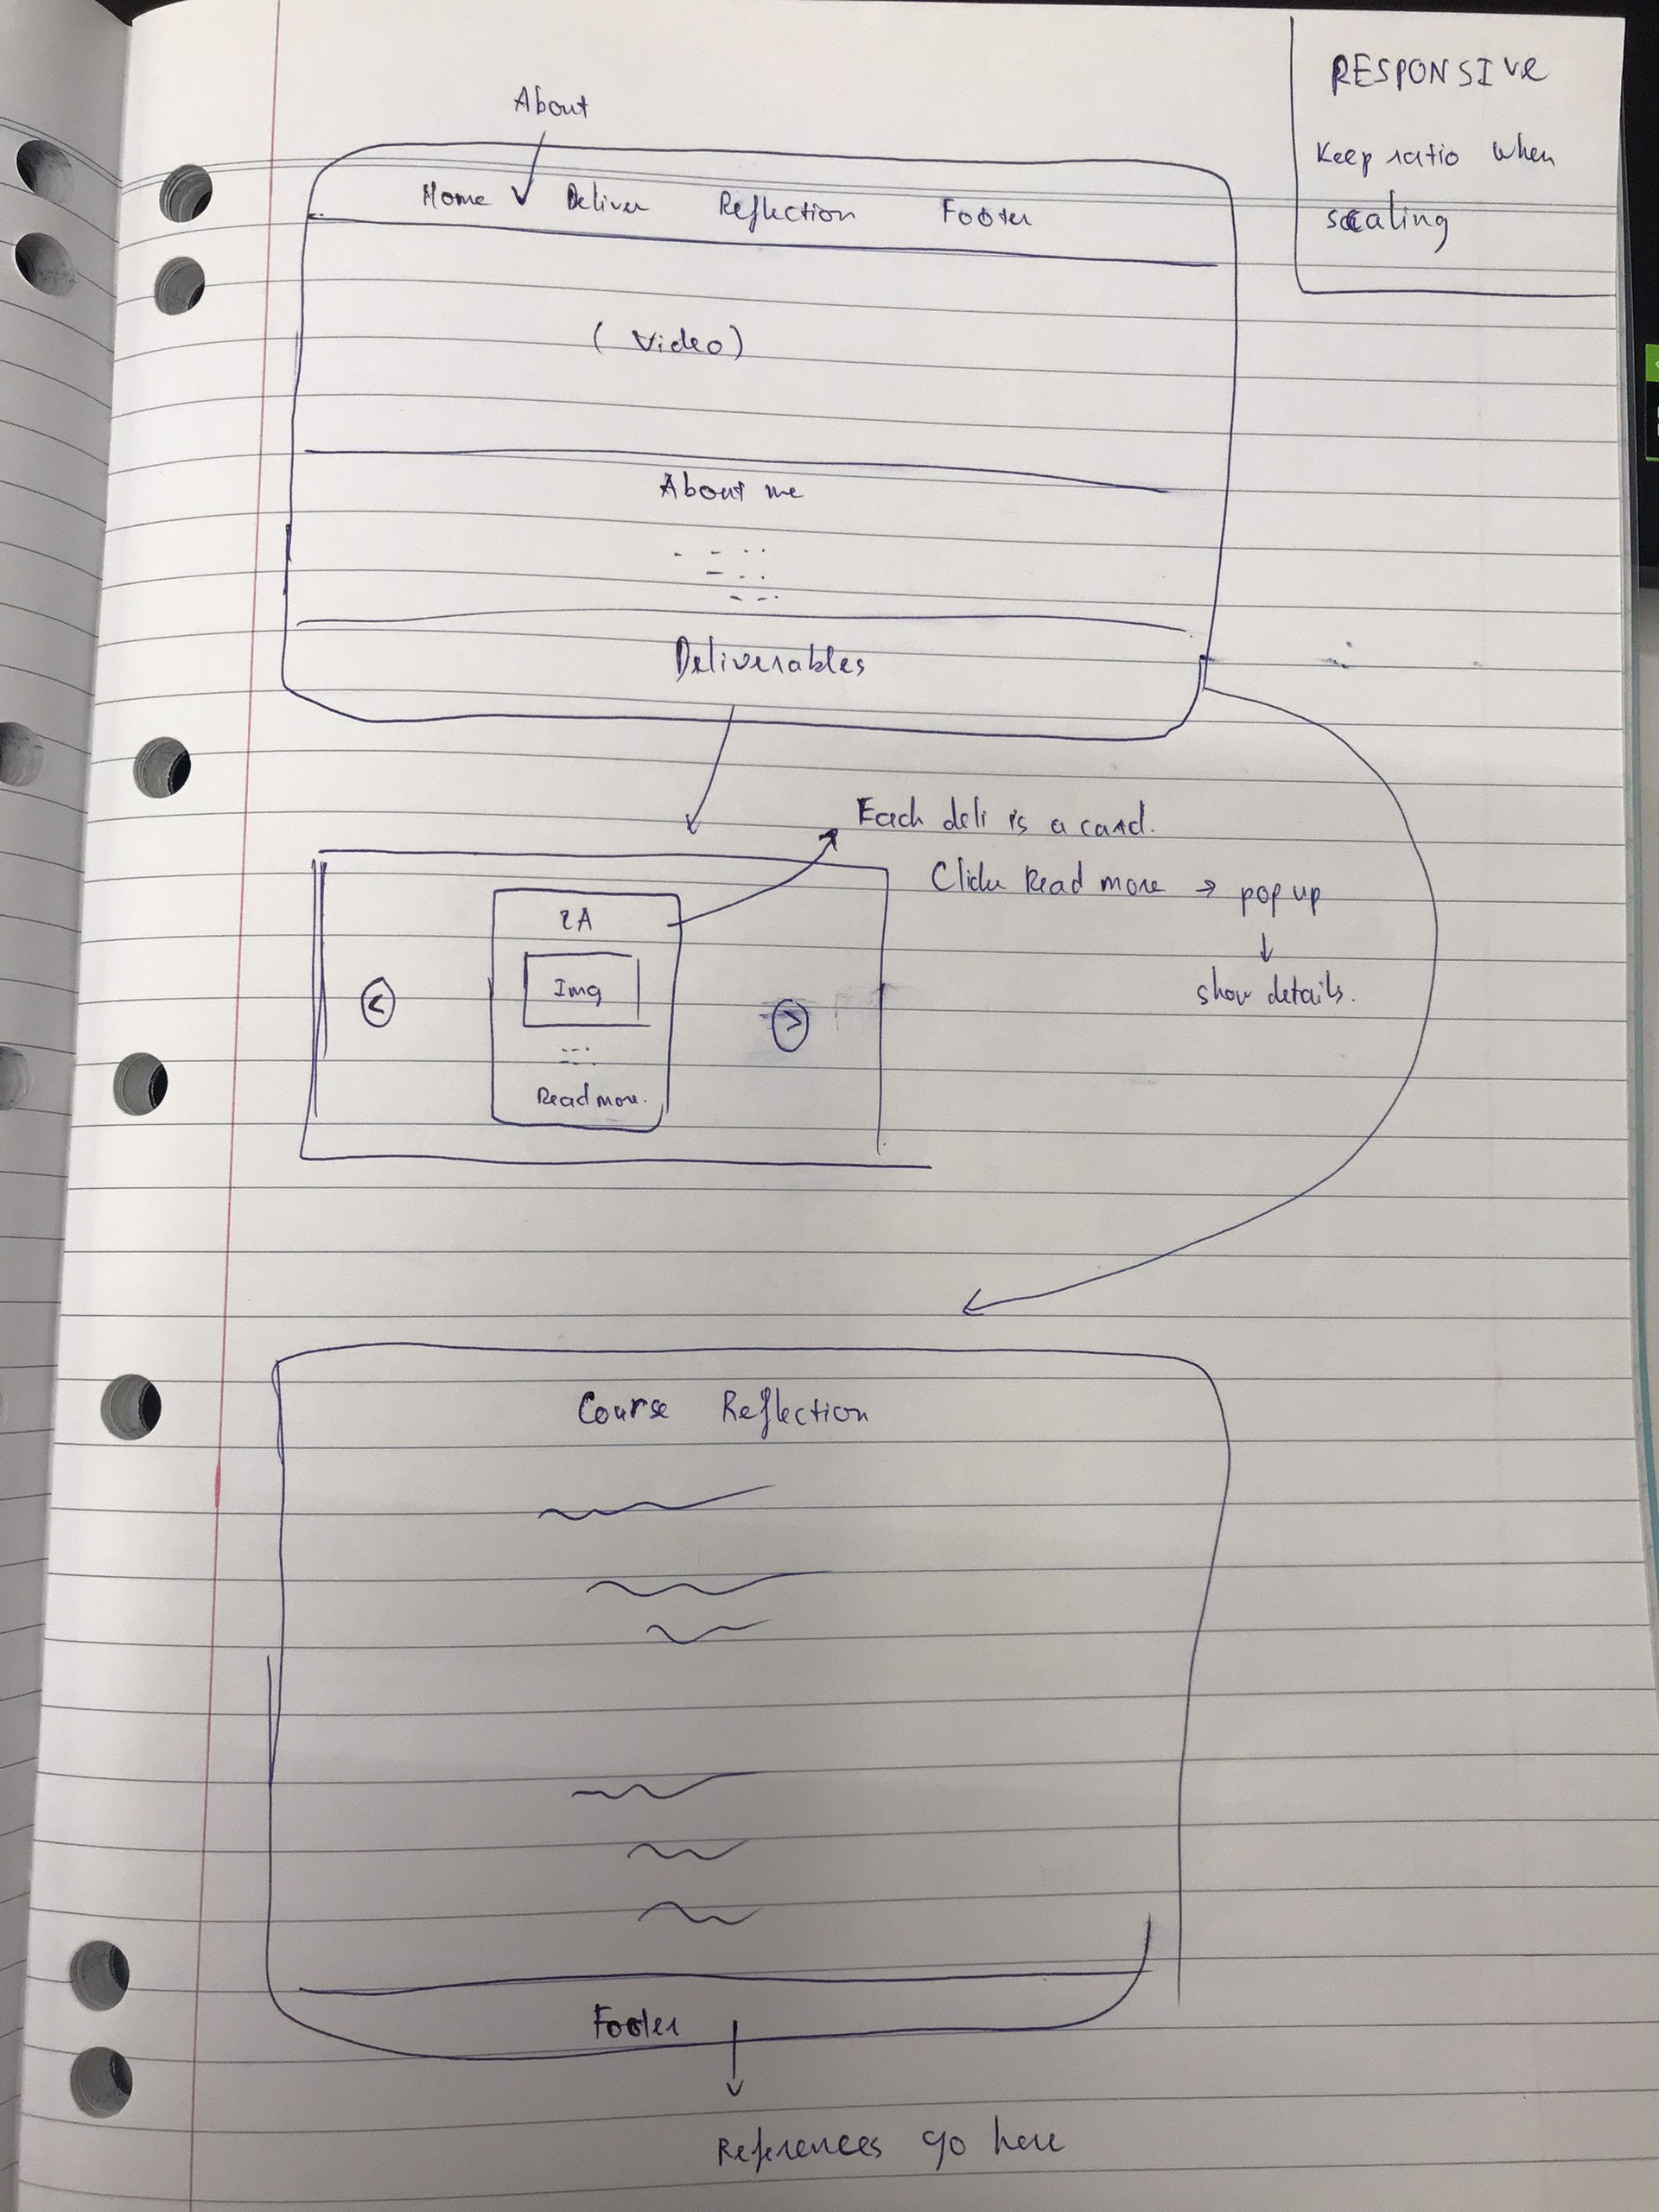 RESPONSIVE
Keep ratio when
scaling
About
Home Deliver Reflection Footer
(Video)
About me
Deliverables
Each deli is a card.
Click Read more → pop up
↓
show details.
Img
<
>
Read more.
Course Reflection
Footer
References go here